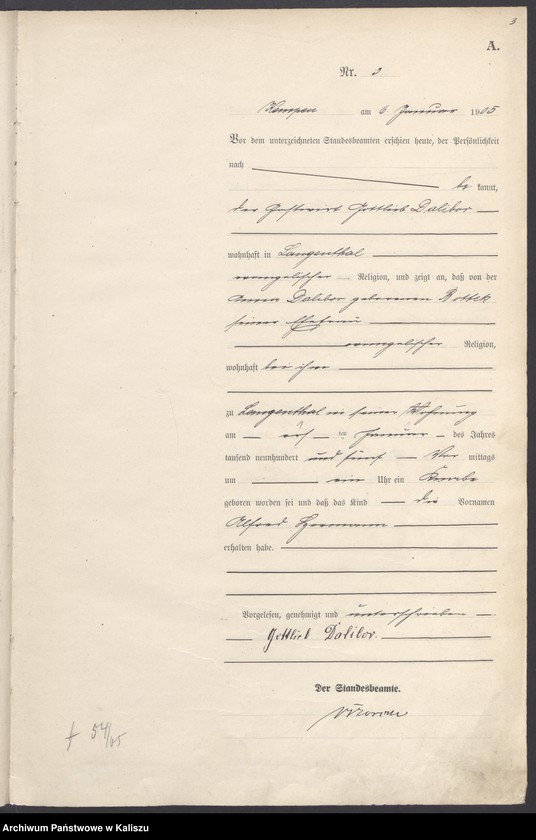 3
A.
Nr. 3
Kempen am 6 Januar 1905
Vor dem unterzeichneten Standesbeamten erschien heute, der Persönlichkeit
nach
be kannt,
der Gastwirt Gottlieb Dalibor
wohnhaft in Langenthal
evangelischer Religion, und zeigt an, daß von der
Anna Dalibor geborenen Bottek
seiner Ehefrau
evangelischer Religion,
wohnhaft bei ihm
zu Langenthal in seiner Wohnung
am ten Januar des Jahres
tausend neunhundert und fünf Vor mittags
um ein Uhr ein Knabe
geboren worden sei und daß das Kind die Vornamen
Alfred Hermann
erhalten habe.
Vorgelesen, genehmigt und unterschrieben
Gottlieb Dalibor.
Der Standesbeamte.
† 54/05
Archiwum Państwowe w Kaliszu